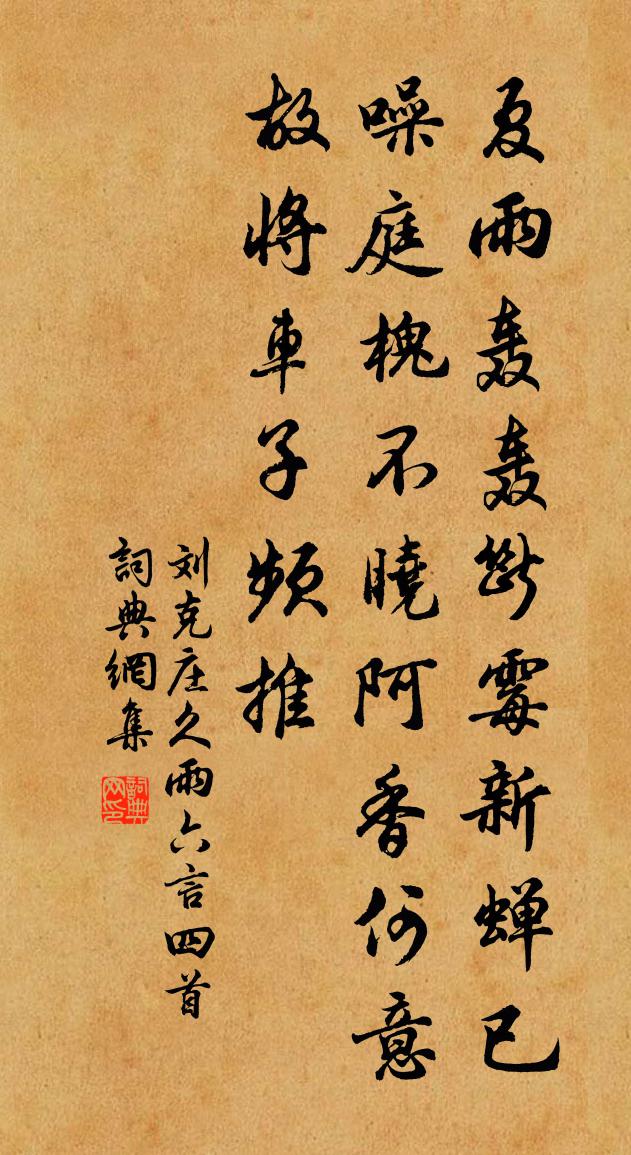 夏雨轰轰断霉新蝉已
噪庭槐不曉阿香何意
故将車子频推
刘克庄久雨六言四首
詞典網集
詞典网印